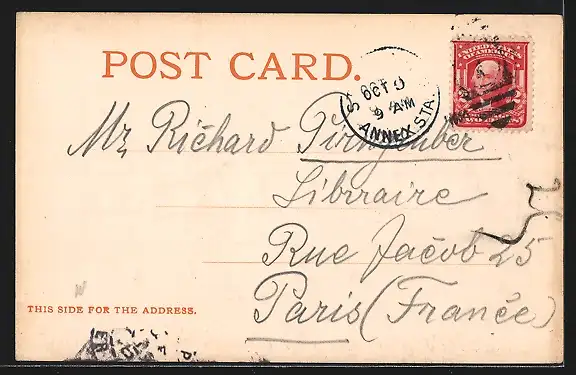 POST CARD.
OCT
9 AM
ANNEX STA.
UNITED STATES
OF AMERICA
Mr Richard
Libraire
Rue Jacob 25
Paris (France)
25
THIS SIDE FOR THE ADDRESS.